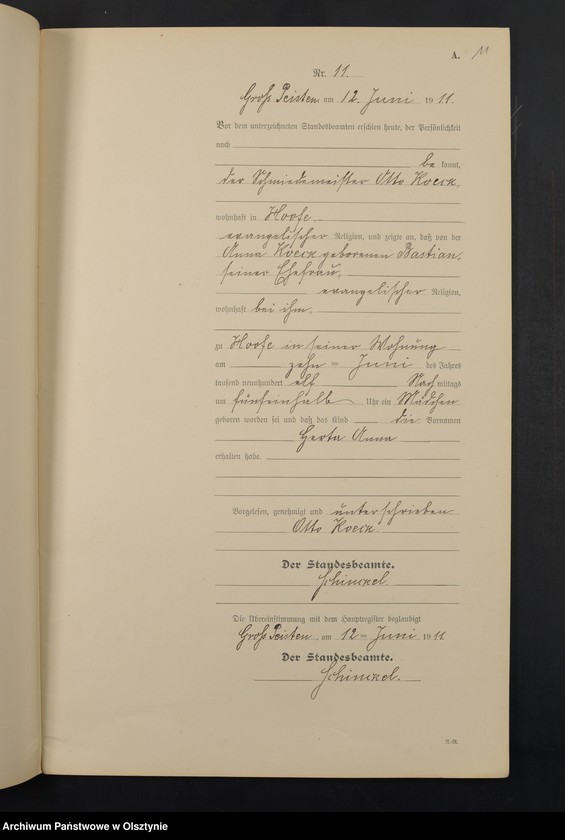 A. 11
Nr. 11.
Groß Peisten am 12. Juni 1911.
Vor dem unterzeichneten Standesbeamten erschien heute, der Persönlichkeit
nach
be kannt,
der Schmiedemeister Otto Kock,
wohnhaft in Hoofe
evangelischer Religion, und zeigte an, daß von der
Anna geborenen Bastian,
seiner Ehefrau,
evangelischer Religion,
wohnhaft bei ihm,
zu Hoofe in seiner Wohnung
am zehn ten Juni des Jahres
tausend neunhundert elf Nach mittags
um fünfeinhalb Uhr ein Mädchen
geboren worden sei und daß das Kind die Vornamen
Herta Anna
erhalten habe.
Vorgelesen, genehmigt und unterschrieben
Otto
Der Standesbeamte.
Schinckel.
Die Übereinstimmung mit dem Hauptregister beglaubigt
Groß Peisten am 12ten Juni 1911
Der Standesbeamte.
Schinckel.
Archiwum Państwowe w Olsztynie